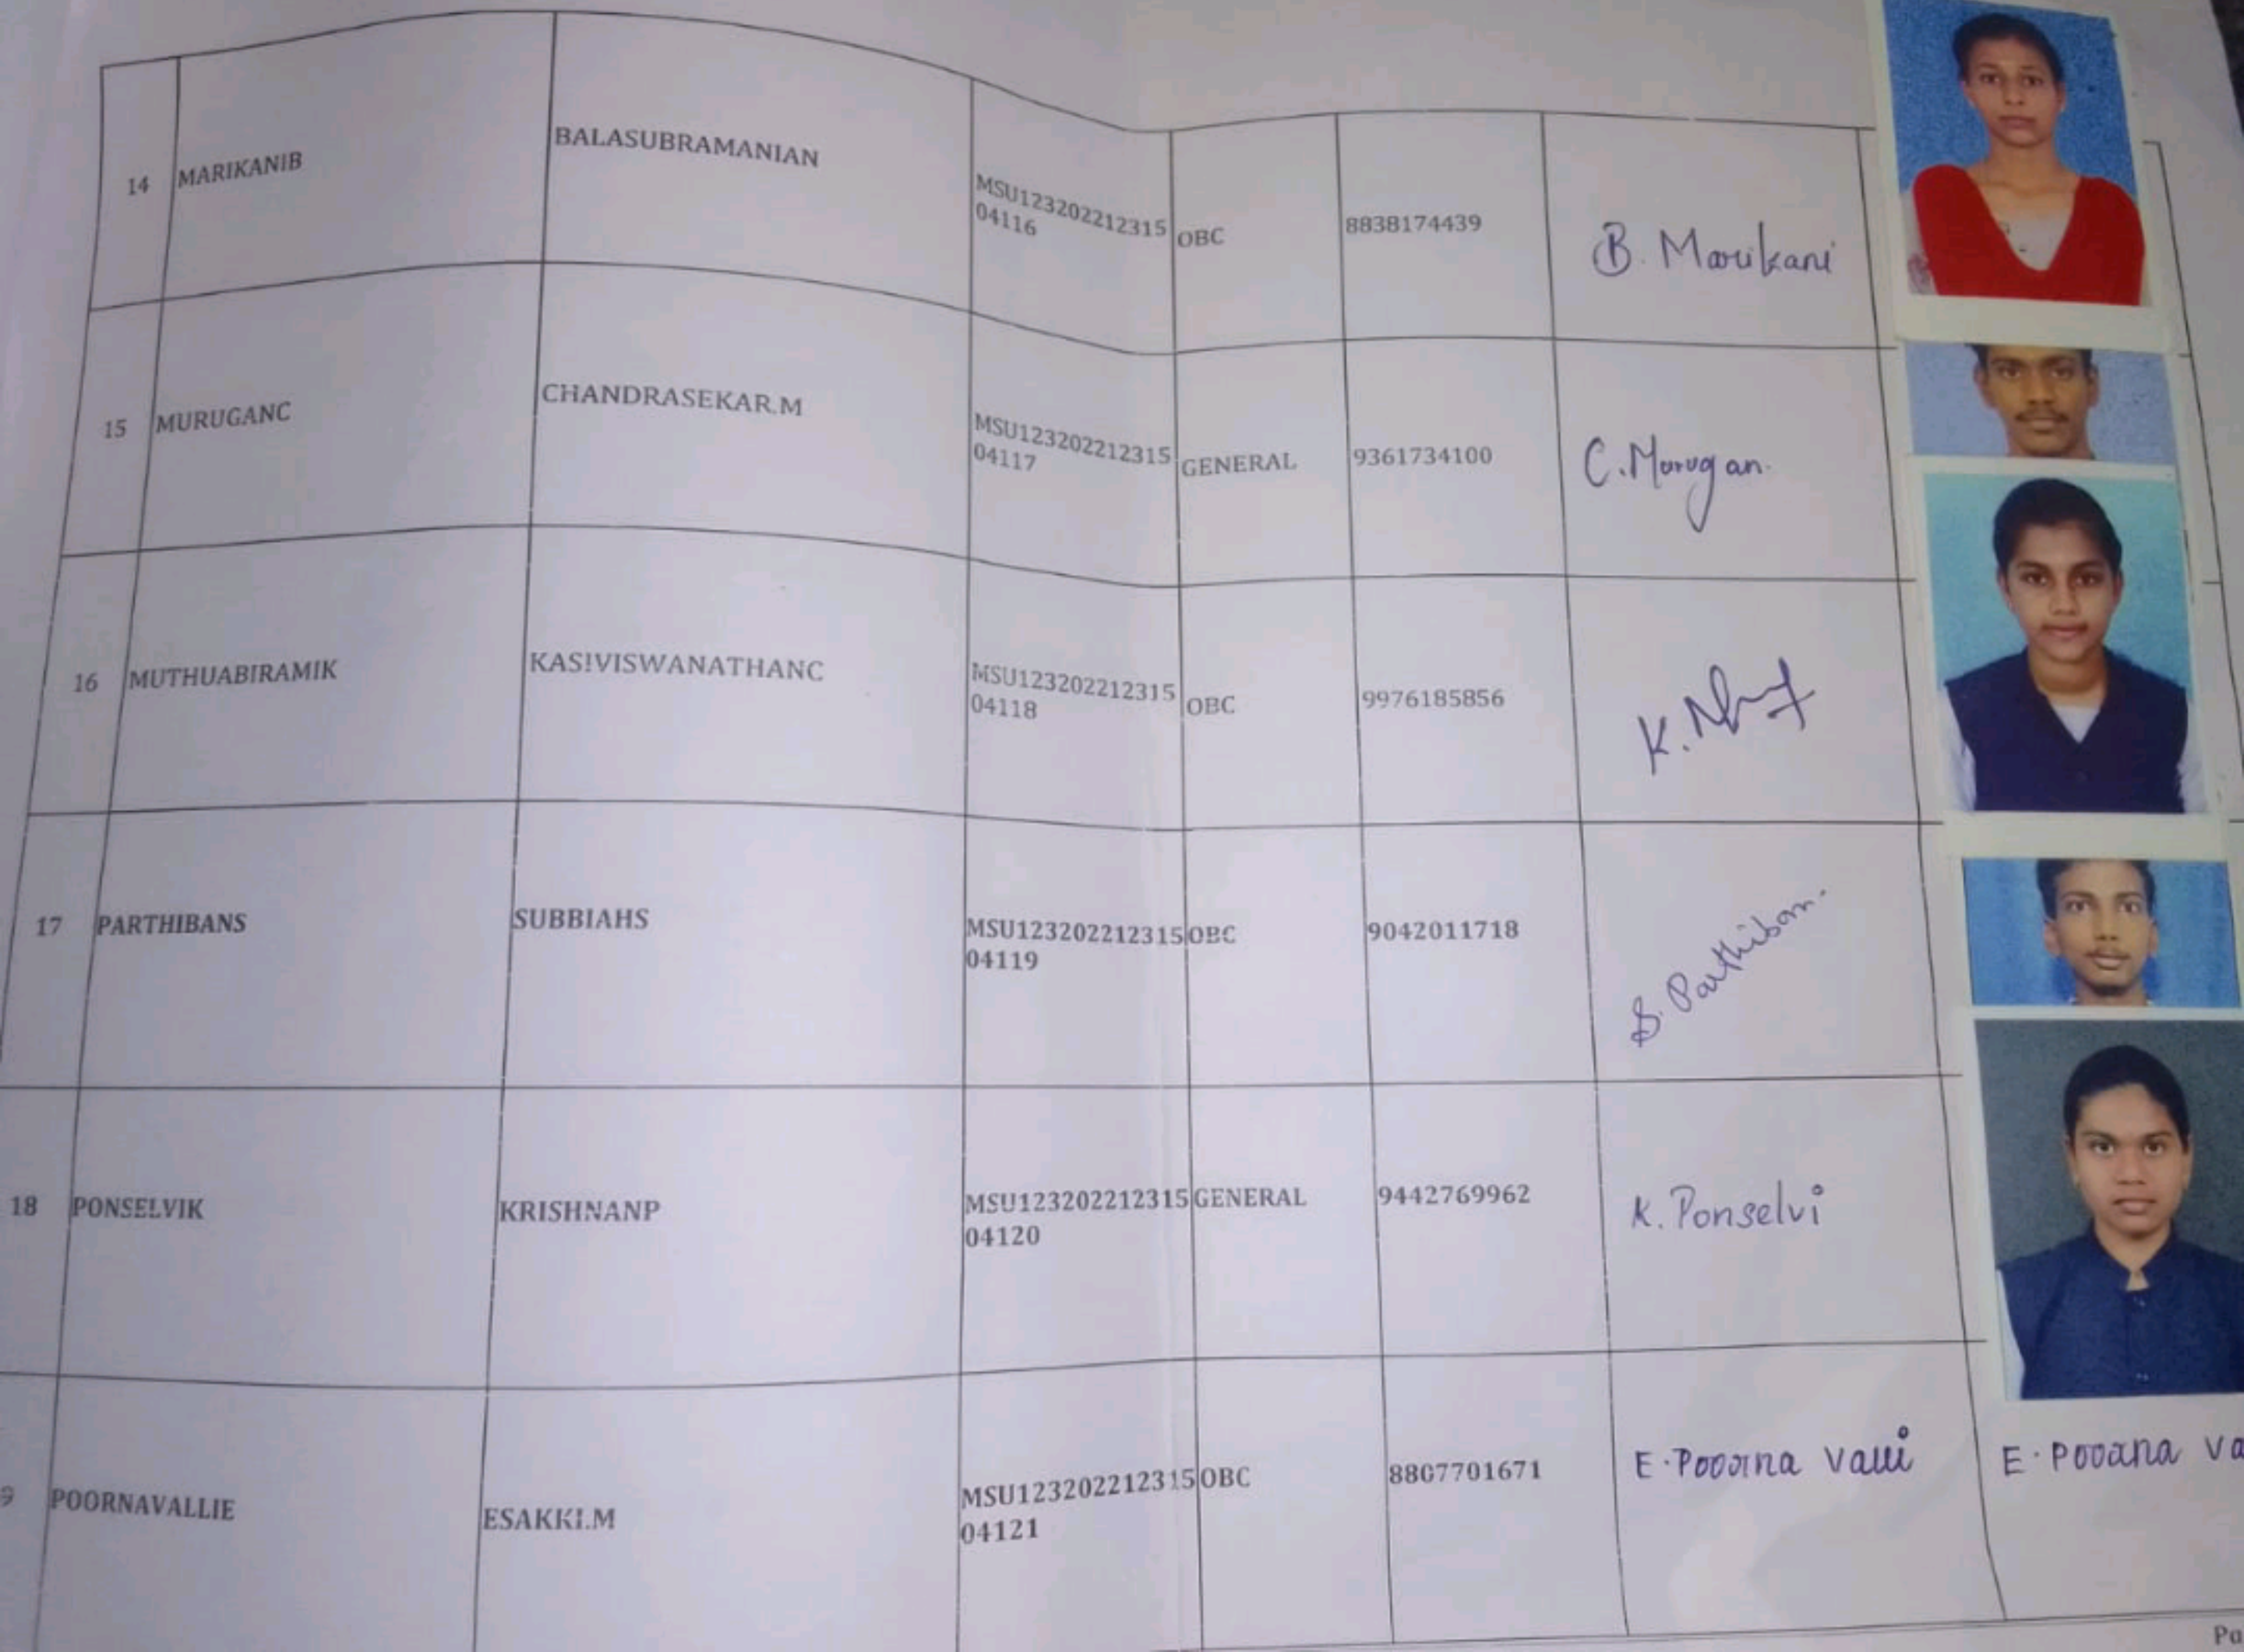 14 MARIKANIB BALASUBRAMANIAN MSU123202212315 OBC 8838174439 B. Marikani
04116
15 MURUGANC CHANDRASEKAR.M MSU123202212315 GENERAL 9361734100 C. Murugan.
04117
16 MUTHUABIRAMIK KASIVISWANATHANC MSU123202212315 OBC 9976185856 K.
04118
17 PARTHIBANS SUBBIAHS MSU123202212315 OBC 9042011718 S. Parthiban.
04119
18 PONSELVIK KRISHNANP MSU123202212315 GENERAL 9442769962 K. Ponselvi
04120
9 POORNAVALLIE ESAKKI.M MSU123202212315 OBC 8807701671 E. Poorna Valli E. Poorna Va
04121
Pa